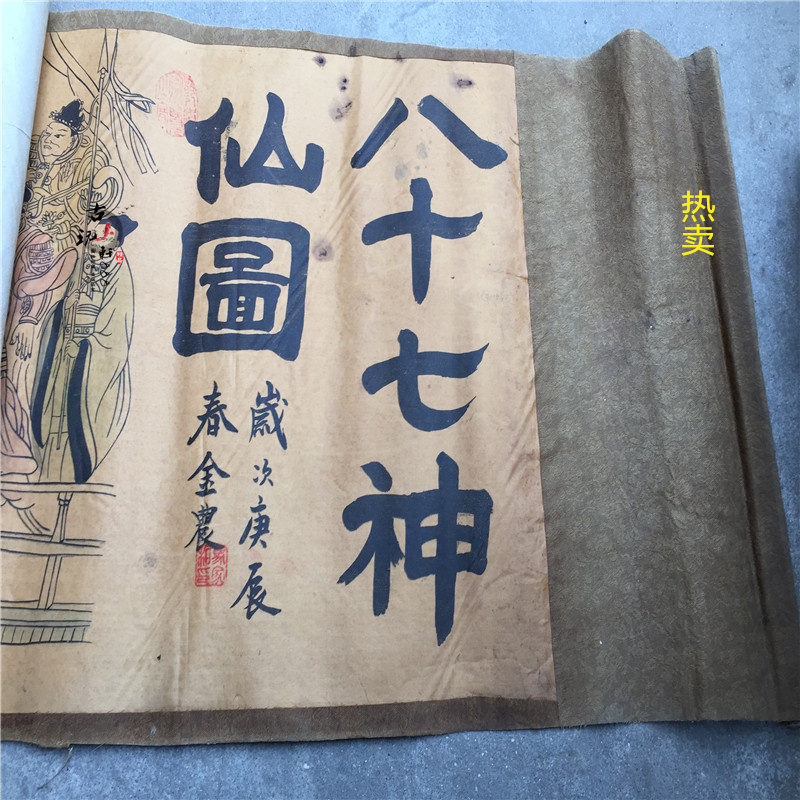 八十七神
仙圖
歲次庚辰
春金農
热卖